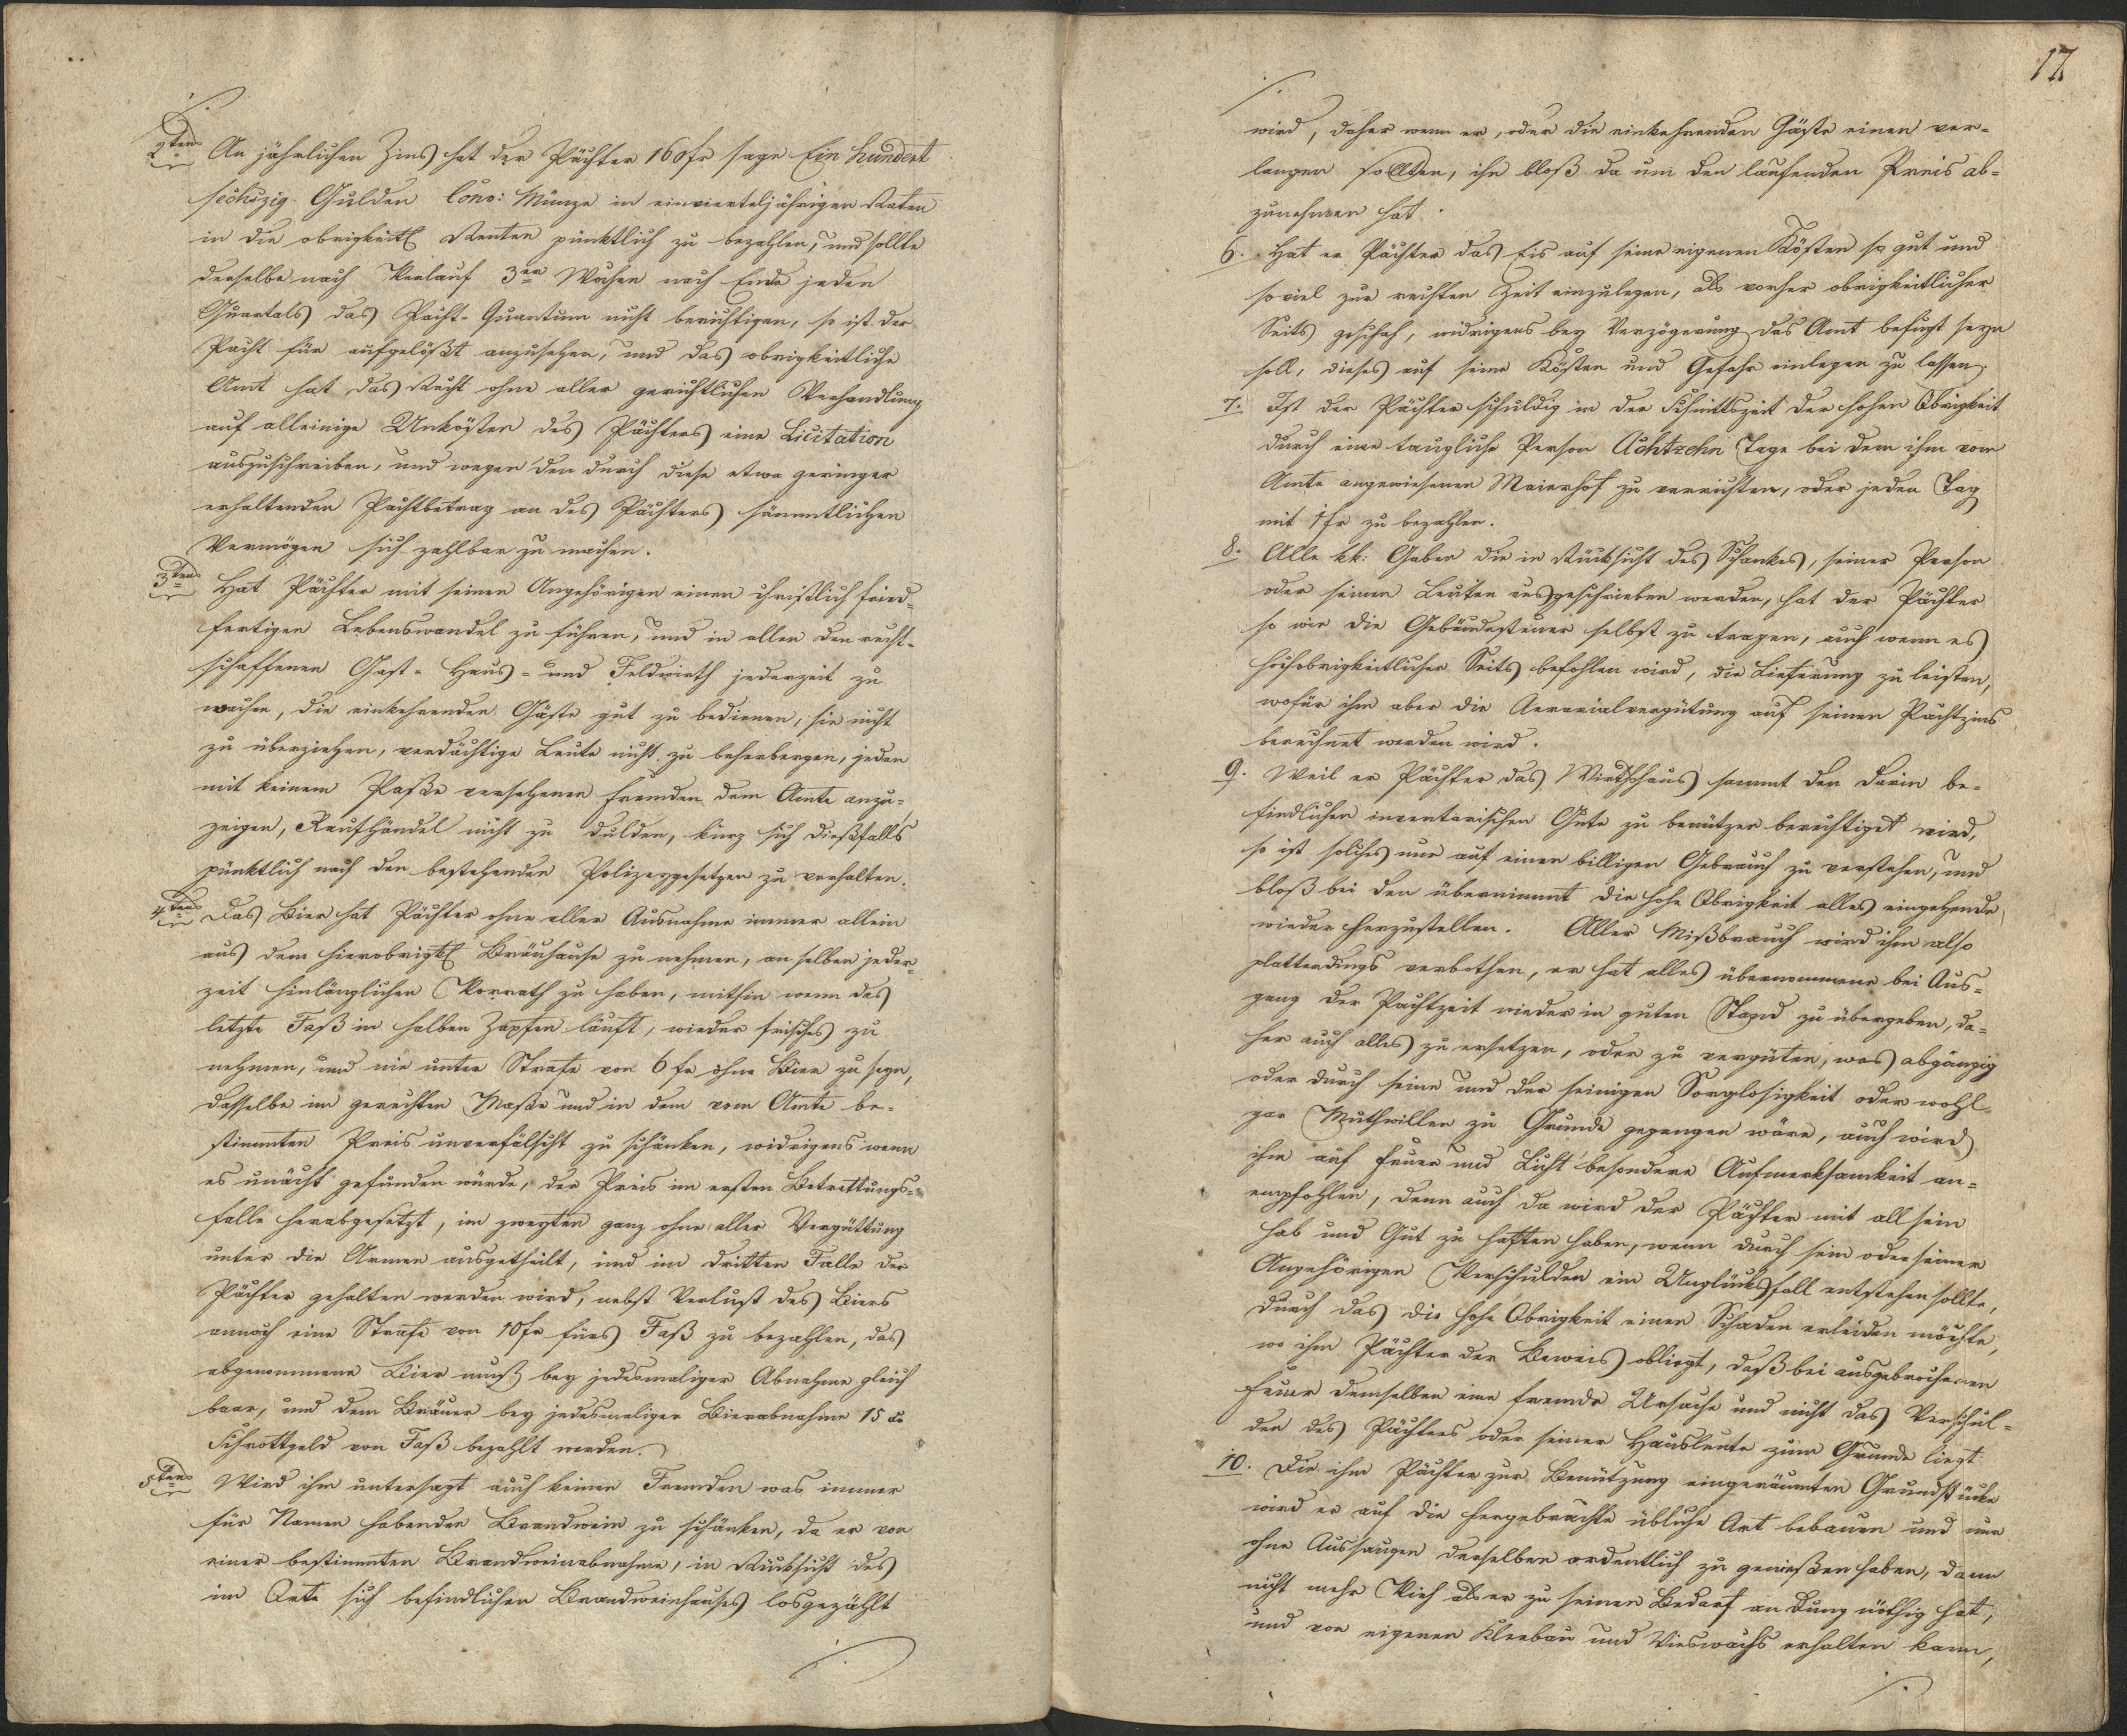 2tens An jährlichen Zins hat der Pächter 160 fr sage Ein hundert
sechszig Gulden Conv: Münze in einvierteljährigen Raten
in die obrigkeitl Renten pünktlich zu bezahlen, und sollte
derselbe nach Verlauf 3er Wochen nach Ende jeden
Quartals das Pacht-Quantum nicht berichtigen, so ist der
Pacht für aufgelößt anzusehen, und das obrigkeitliche
Amt hat das Recht ohne aller gerichtlichen Verhandlung
auf alleinige Unkösten des Pächters eine Licitation
auszuschreiben, und wegen den durch diese etwa geringer
erhaltenden Pachtbetrag an des Pächters sämmtlichen
Vermögen sich zahlbar zu machen.
3tens Hat Pächter mit seinen Angehörigen einen christlich fried-
fertigen Lebenswandel zu führen, und in allen den recht-
schaffenen Gast- Haus- und Feldwirth jederzeit zu
machen, die einkehrenden Gäste gut zu bedienen, sie nicht
zu überziehen, verdächtige Leute nicht zu beherbergen, jeden
mit keinem Paße versehenen Fremden dem Amte anzu-
zeigen, Raufhändel nicht zu dulden, kurz sich dießfalls
pünktlich nach den bestehenden Polizeygesetzen zu verhalten.
4tens Das Bier hat Pächter ohne aller Ausnahme immer allein
aus dem hierobrigktl Bräuhause zu nehmen, an selben jeder-
zeit hinlänglichen Vorrath zu haben, mithin wenn das
letzte Faß im halben Zapfen läuft, wieder frisches zu
nehmen, und nie unter Strafe von 6 fr ohne Bier zu seyn,
dasselbe im gerechten Maße und in dem vom Amte be-
stimmten Preis unverfälscht zu schänken, widrigens wenn
es unächt gefunden würde, der Preis im ersten Betrettungs-
falle herabgesetzt, im zweyten ganz ohne aller Vergüttung
unter die Armen ausgetheilt, und im dritten Falle der
Pächter gehalten werden wird, nebst Verlust des Biers
annoch eine Strafe von 10 fr fürs Faß zu bezahlen, das
abgenommene Bier muß bey jedesmaliger Abnahme gleich
baar, und dem Bräuer bey jedesmaliger Bierabnahme 15 x
Schrottgeld von Faß bezahlt werden.
5tens Wird ihm untersagt auch keinen Fremden was immer
für Namen habenden Brandwein zu schänken, da er von
einer bestimmten Brandweinabnahme, in Rücksicht des
im Orte sich befindlichen Brandweinhauses losgezählt
17
wird, daher wenn er, oder die einkehrenden Gäste einen ver-
langen sollten, ihn bloß da um den laufenden Preis ab-
zunehmen hat.
6. Hat er Pächter das Eis auf seine eigenen Kösten so gut und
so viel zur rechten Zeit einzulegen, als vorher obrigkeitlicher
Seits geschah, widrigens bey Verzögerung das Amt befugt seyn
soll, dieses auf seine Kösten und Gefahr einlegen zu lassen.
7. Ist der Pächter schuldig in der Schnittszeit der hohen Obrigkeit
durch eine taugliche Person Achtzehn Tage bei dem ihm vom
Amte angewiesenen Maierhof zu verrichten, oder jeden Tag
mit 1 fr zu bezahlen.
8. Alle kk: Gaben die in Rücksicht des Schankes, seiner Person
oder seinen Leuten ausgeschrieben werden, hat der Pächter
so wie die Gebäudesteuer selbst zu tragen, auch wenn es
hochobrigkeitlicher Seits befohlen wird, die Lieferung zu leisten,
wofür ihm aber die Aerarialvergütung auf seinen Pachtzins
berechnet werden wird.
9. Weil er Pächter das Wirthshaus sammt den darin be-
findlichen inventarischen Gute zu benützen berechtiget wird,
so ist solches nur auf einen billigen Gebrauch zu verstehen, und
bloß bei den übernimmt die hohe Obrigkeit alles eingehende
wieder herzustellen. Aller Mißbrauch wird ihm also
platterdings verbothen, er hat alles übernommene bei Aus-
gang der Pachtzeit wieder in guten Stand zu übergeben, da-
her auch alles zu ersetzen, oder zu vergüten, was abgängig
oder durch seine und der seinigen Sorglosigkeit oder wohl
gar Muthwillen zu Grunde gegangen wäre, auch wird
ihm auf Feuer und Licht besondere Aufmerksamkeit an-
empfohlen, denn auch da wird der Pächter mit all sein
Hab und Gut zu haften haben, wenn durch sein oder seiner
Angehörigen Verschulden ein Unglücksfall entstehen sollte,
durch das die hohe Obrigkeit einen Schaden erleiden möchte,
wo ihm Pächter der Beweis obliegt, daß bei ausgebrochenen
Feuer demselben eine fremde Ursache und nicht das Verschul-
den des Pächters oder seiner Hausleute zum Grunde liegt.
10. Die ihm Pächter zur Benützung eingeräumten Grundstücke
wird er auf die hergebrachte übliche Art bebauen und nur
ohne Aussaugen derselben ordentlich zu genießen haben, dann
nicht mehr Vieh als er zu seinen Bedarf an Dung nöthig hat,
und von eigenen Kleebau und Wieswachs erhalten kann,